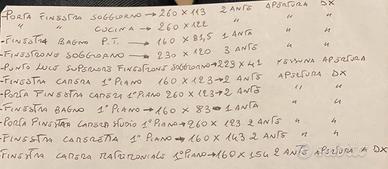 -PORTA FINESTRA SOGGIORNO → 260 × 113 2 ANTE APERTURA DX
" " CUCINA → 260 × 122 " " "
-FINESTRA BAGNO P.T. → 160 × 81,5 1 ANTA " "
-FINESTRONE SOGGIORNO → 230 × 120 3 ANTE " "
-PUNTO LUCE SUPERIORE FINESTRONE SOGGIORNO → 223 × 41 NESSUNA APERTURA
-FINESTRA CAMERA 1° PIANO → 160 × 123 → 2 ANTE APERTURA DX
-PORTA FINESTRA CAMERA 1° PIANO 260 × 123 → 2 ANTE " "
-FINESTRA BAGNO 1° PIANO → 160 × 83 → 1 ANTA " "
-PORTA FINESTRA CAMERA STUDIO 1° PIANO → 260 × 123 2 ANTE " "
-FINESTRA CAMERETTA 1° PIANO → 160 × 143 2 ANTE " "
-FINESTRA CAMERA MATRIMONIALE 1° PIANO → 160 × 154 2 ANTE APERTURA A DX